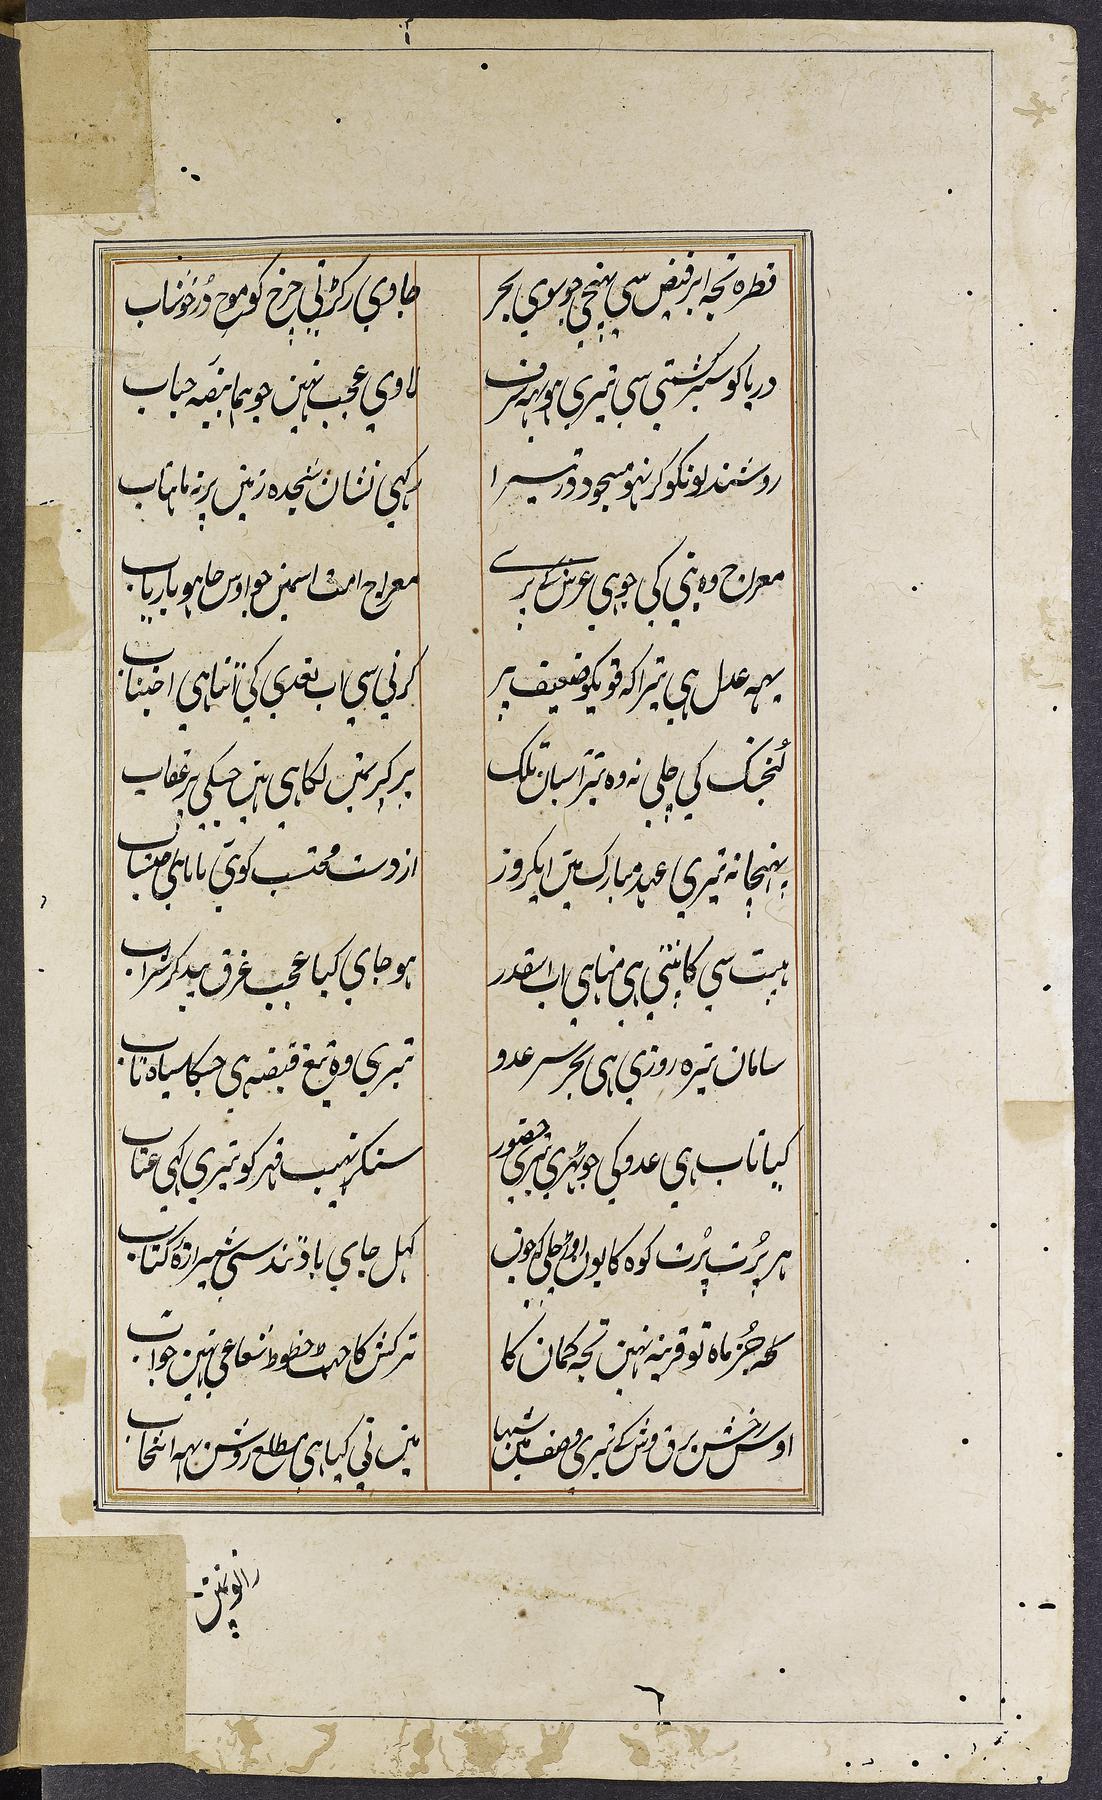 قطره تجه ابر فیض سی پہنچی جو سوی بحر
جاوی رکڑتی چرخ کو موج در خوشاب
دریا کو سیر کشتی سی تیری ہو یہہ شرف
لاوی عجب نہین جو ہما بیضہ حباب
روشندلونکو کر نہو مسجود در تیرا
رکہی نشان سجدہ زمین پر نہ ماہتاب
معراج وہ نبی کی جو ہی عرش کے پرے
معراج امت اسمین جو اوس جا ہو باریاب
یہہ عدل ہی تیرا کہ قویکو ضعیف پر
کرنی سی اب تعدی کی اتنا ہی اجتناب
کنجشک کی چلی نہ وہ تیر آسمان تلک
پر کیر مین لکا ہی ہین جسکی پر عقاب
پہنچا نہ تیری عہد مبارک مین ایکروز
از دست محتسب کوی
ہیبت سی کانپتی ہی مناہی اب اسقدر
ہو جای کیا عجب غرق بید کر شراب
سامان تیرہ روزی ہی بحر سر عدو
تیری وہ تیغ قبضہ ہی جسکا سیاہ تاب
کیا تاب ہی عدو کی جو ٹہری تیری حضور
سنکر نہیب قہر کو تیری کہی عتاب
ہر پرت پرت کوہ کا یون اوڑ چلی کہ جون
کہل جای باد تند سی شیرازہ کتاب
کہہ جز ماہ تو قرینہ نہین تجہ کمان کا
ترکش کا جہٹ خطوط شعاعی نہین جواب
اوس رخش برق وش کے تیری وصف مین شہا
مین نی کیا ہی مطلع روشن یہہ انتخاب
٦